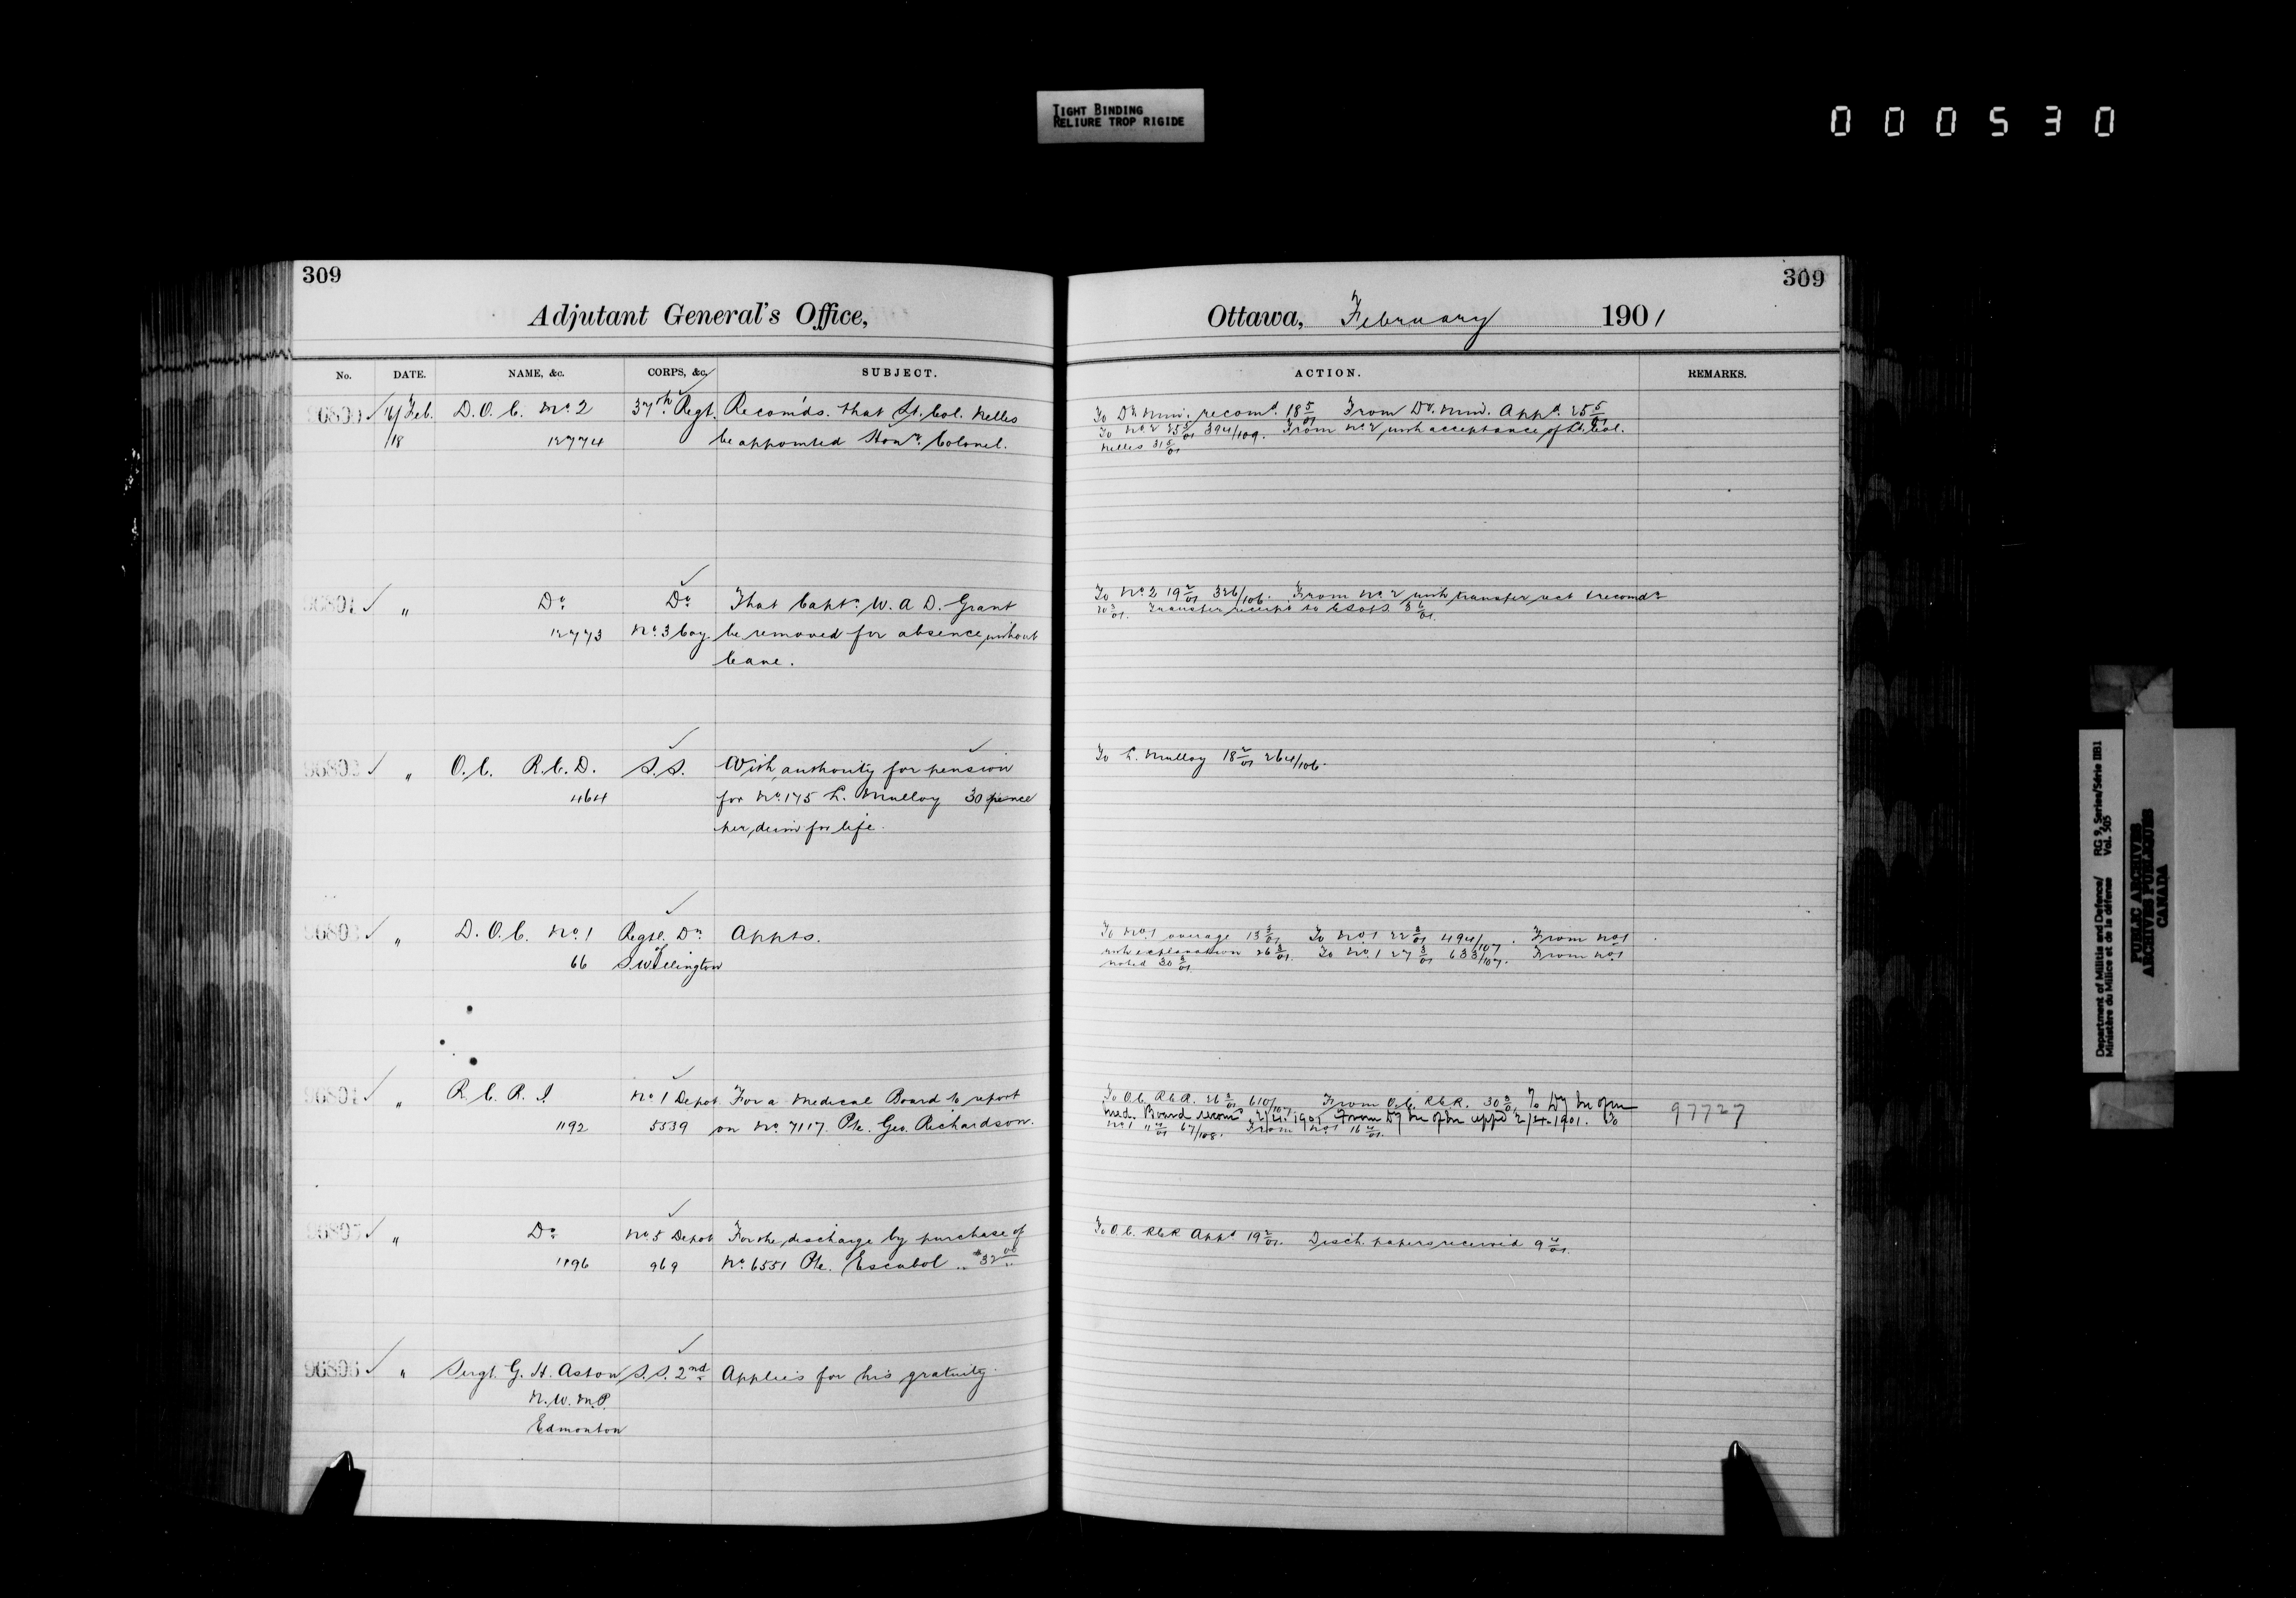 TIGHT BINDING
RELIURE TROP RIGIDE
000530
309
Adjutant General's Office,
No. DATE. NAME, &c. CORPS, &c. SUBJECT.
96800 16/Feb. D.O.C. No. 2 37th Regt. Recomds. that Lt. Col. Nelles
/18 12774 be appointed Hony. Colonel.
96801 " Do. Do. That Capt. W. A D. Grant
12773 No. 3 Coy. be removed for absence without
leave.
96802 " O.C. R.C.D. S.S. With authority for pension
464 for No. 175 L. Mulloy 30 pence
per diem for life.
96803 " D.O.C. No. 1 Regtl. Dn.
66 of S Wellington
Appts.
96804 " R.C.R.I No. 1 Depot For a Medical Board to report
1192 5539 on No. 7117. Pte. Geo. Richardson.
96805 " Do. No. 5 Depot For the discharge by purchase of
1196 969 No. 6551 Pte. Escabol $32.00
96806 " Sergt. G. H. Aston S.S. 2nd Applies for his gratuity.
N.W.M.P.
Edmonton
309
Ottawa, February 1901
ACTION. REMARKS.
To Dr. Min. recomd. 18 5/01 From Dr. Min. Appd. 25 5/01
To No. 2 25 5/01 394/109. From No. 2 with acceptance of Lt. Col.
Nelles 31 5/01
To No. 2 19 2/01 326/106. From No. 2 with transfer rect recomd.
20 3/01. Transfer receipt to 3 6/01.
To L. Mulloy 18 2/01 264/106.
To No. 1 average 13 3/01 To No. 1 22 3/01 494/107. From No. 1
with explanation 26 3/01. To No. 1 27 3/01 633/107. From No. 1
noted 30 3/01.
To O.C. RCR. 26 3/01 610/107 From O.C. RCR. 30 3/01 To Dy M of M
Med. Board recomd 2/4.1901 From Dy M of M appd 2/4.1901. To 97727
No. 1 11 4/01 67/108. From No. 1 16 4/01.
To O.C. RCR Appd 19 2/01. Disch. papers received 9 4/01.
Department of Militia and Defence/ RG 9, Series/Série IIB1
Ministère du Milice et de la défense Vol. 505
PUBLIC ARCHIVES
ARCHIVES PUBLIQUES
CANADA